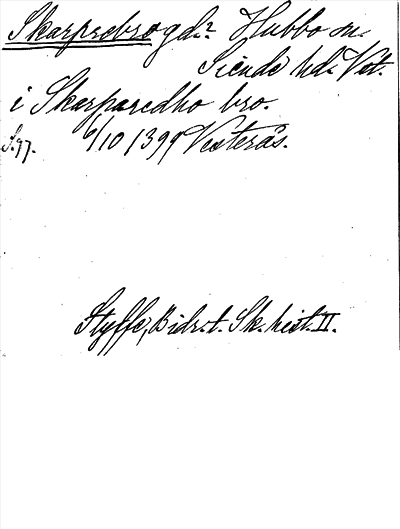 Skarprebro gd.? Hubbo sn.
Siende hd. Vtl.
i Skarparedho bro.
S. 97. 6/10 1399 Vesterås.
Styffe, Bidr. t. Sk. hist. II.